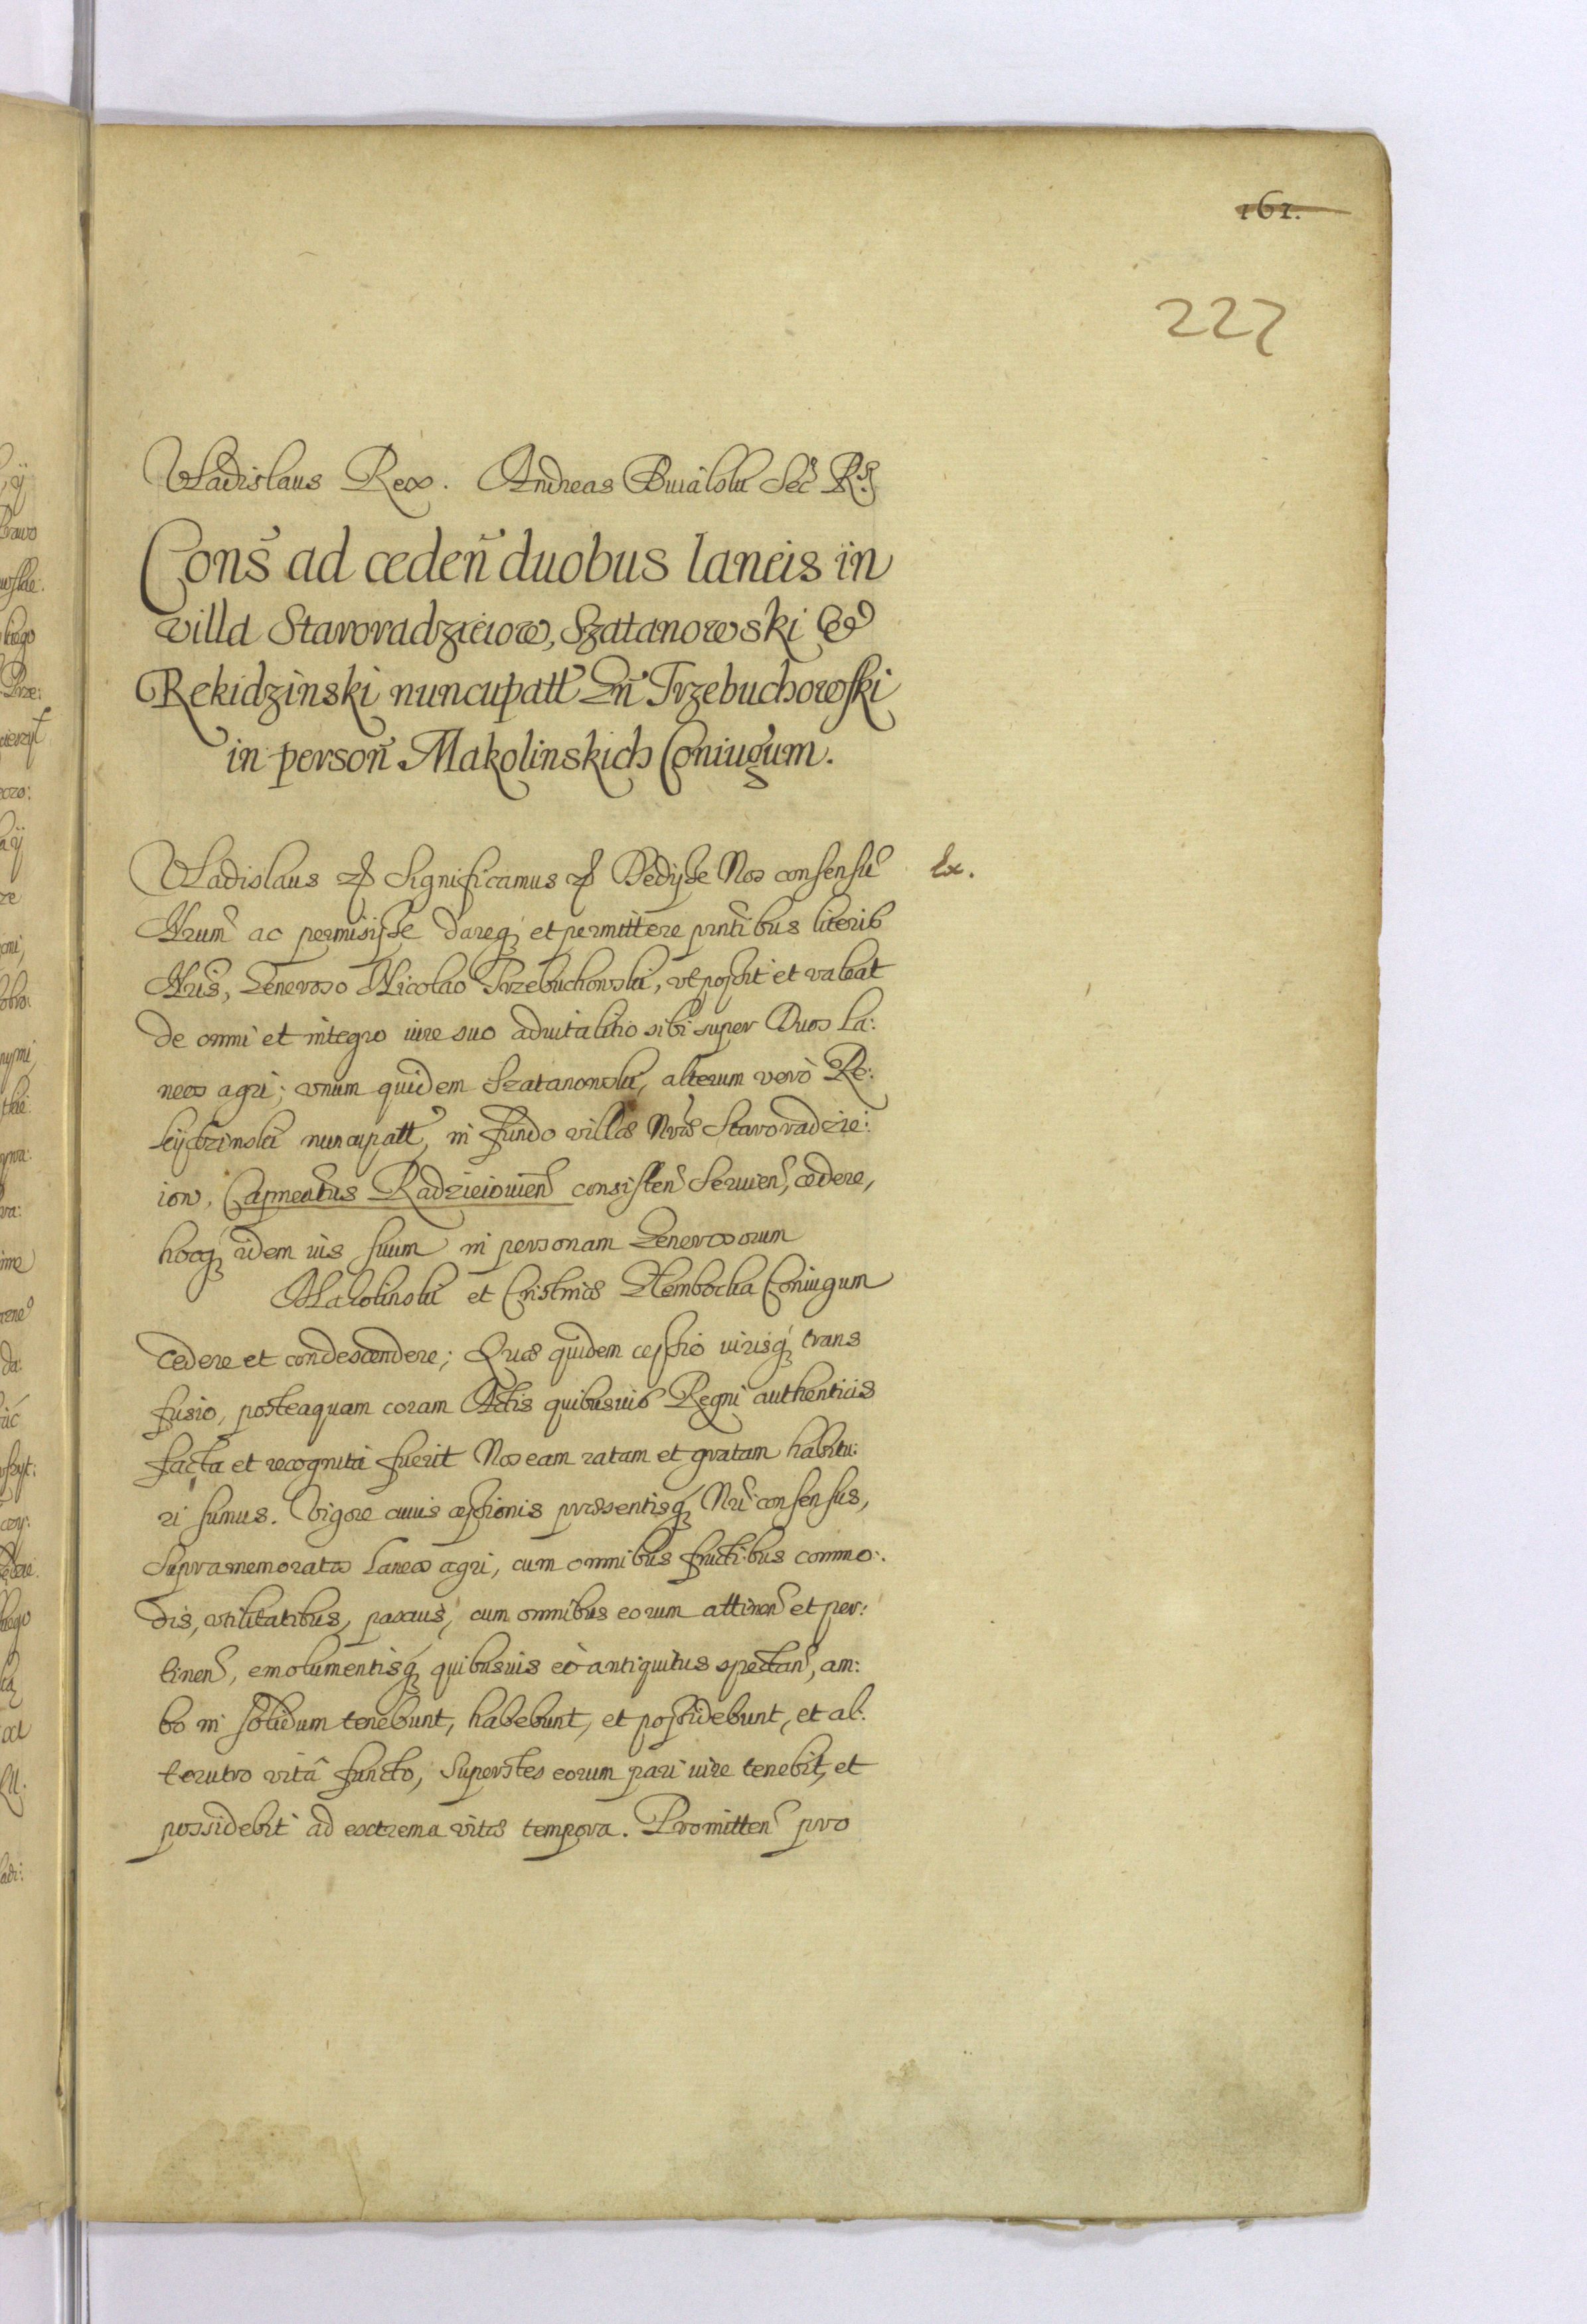 161.
227
Vladislaus Rex. Andreas Buialski Sec̃ R.
Cons̃ ad ceden̄ duobus laneis in
villa Staroradzieiow, Szatanowski &
Rekidzinski nuncupatt Gn̄ Trzebuchowski
in person̄ Makolinskich Coniugum.
Vladislaus etc Significamus etc Dedisse Nos consensũ lx.
Nrum ac permisisse dareq; et permittere pñtibus literis
Nris, Generoso Nicolao Trzebuchowski, vt possit et valeat
de omni et integro iure suo aduitalitio sibi super Duos La:
neos agri; vnum quidem Szatanowski, alterum verò Re:
kijdzinski nuncupatt, in fundo villæ Nræ Staroradzie:
iow, Capneatus Radzieiouien̄ consisten̄ Seruien̄, cedere,
hocq; idem ius suum in personam Generosorum
Makolinski et Cristinæ Głembocka Coniugum
cedere et condescendere; Quæ quidem cessio iurisq; trans
fusio, posteaquam coram Actis quibusuis Regni authenticis
facta et recognita fuerit Nos eam ratam et gratam habitu:
ri sumus. Vigore cuius cessionis præsentisq; Nri consensus,
Supramemoratos Laneos agri, cum omnibus fructibus commo:
dis, vtilitatibus, pascuis, cum omnibus eorum attinen̄ et per:
tinen̄, emolumentisq; quibusuis eò antiquitus spectan̄, am:
bo in solidum tenebunt, habebunt, et possidebunt, et al:
terutro vitâ functo, Superstes eorum pari iure tenebit, et
possidebit ad extrema vitæ tempora. Promitten̄ pro